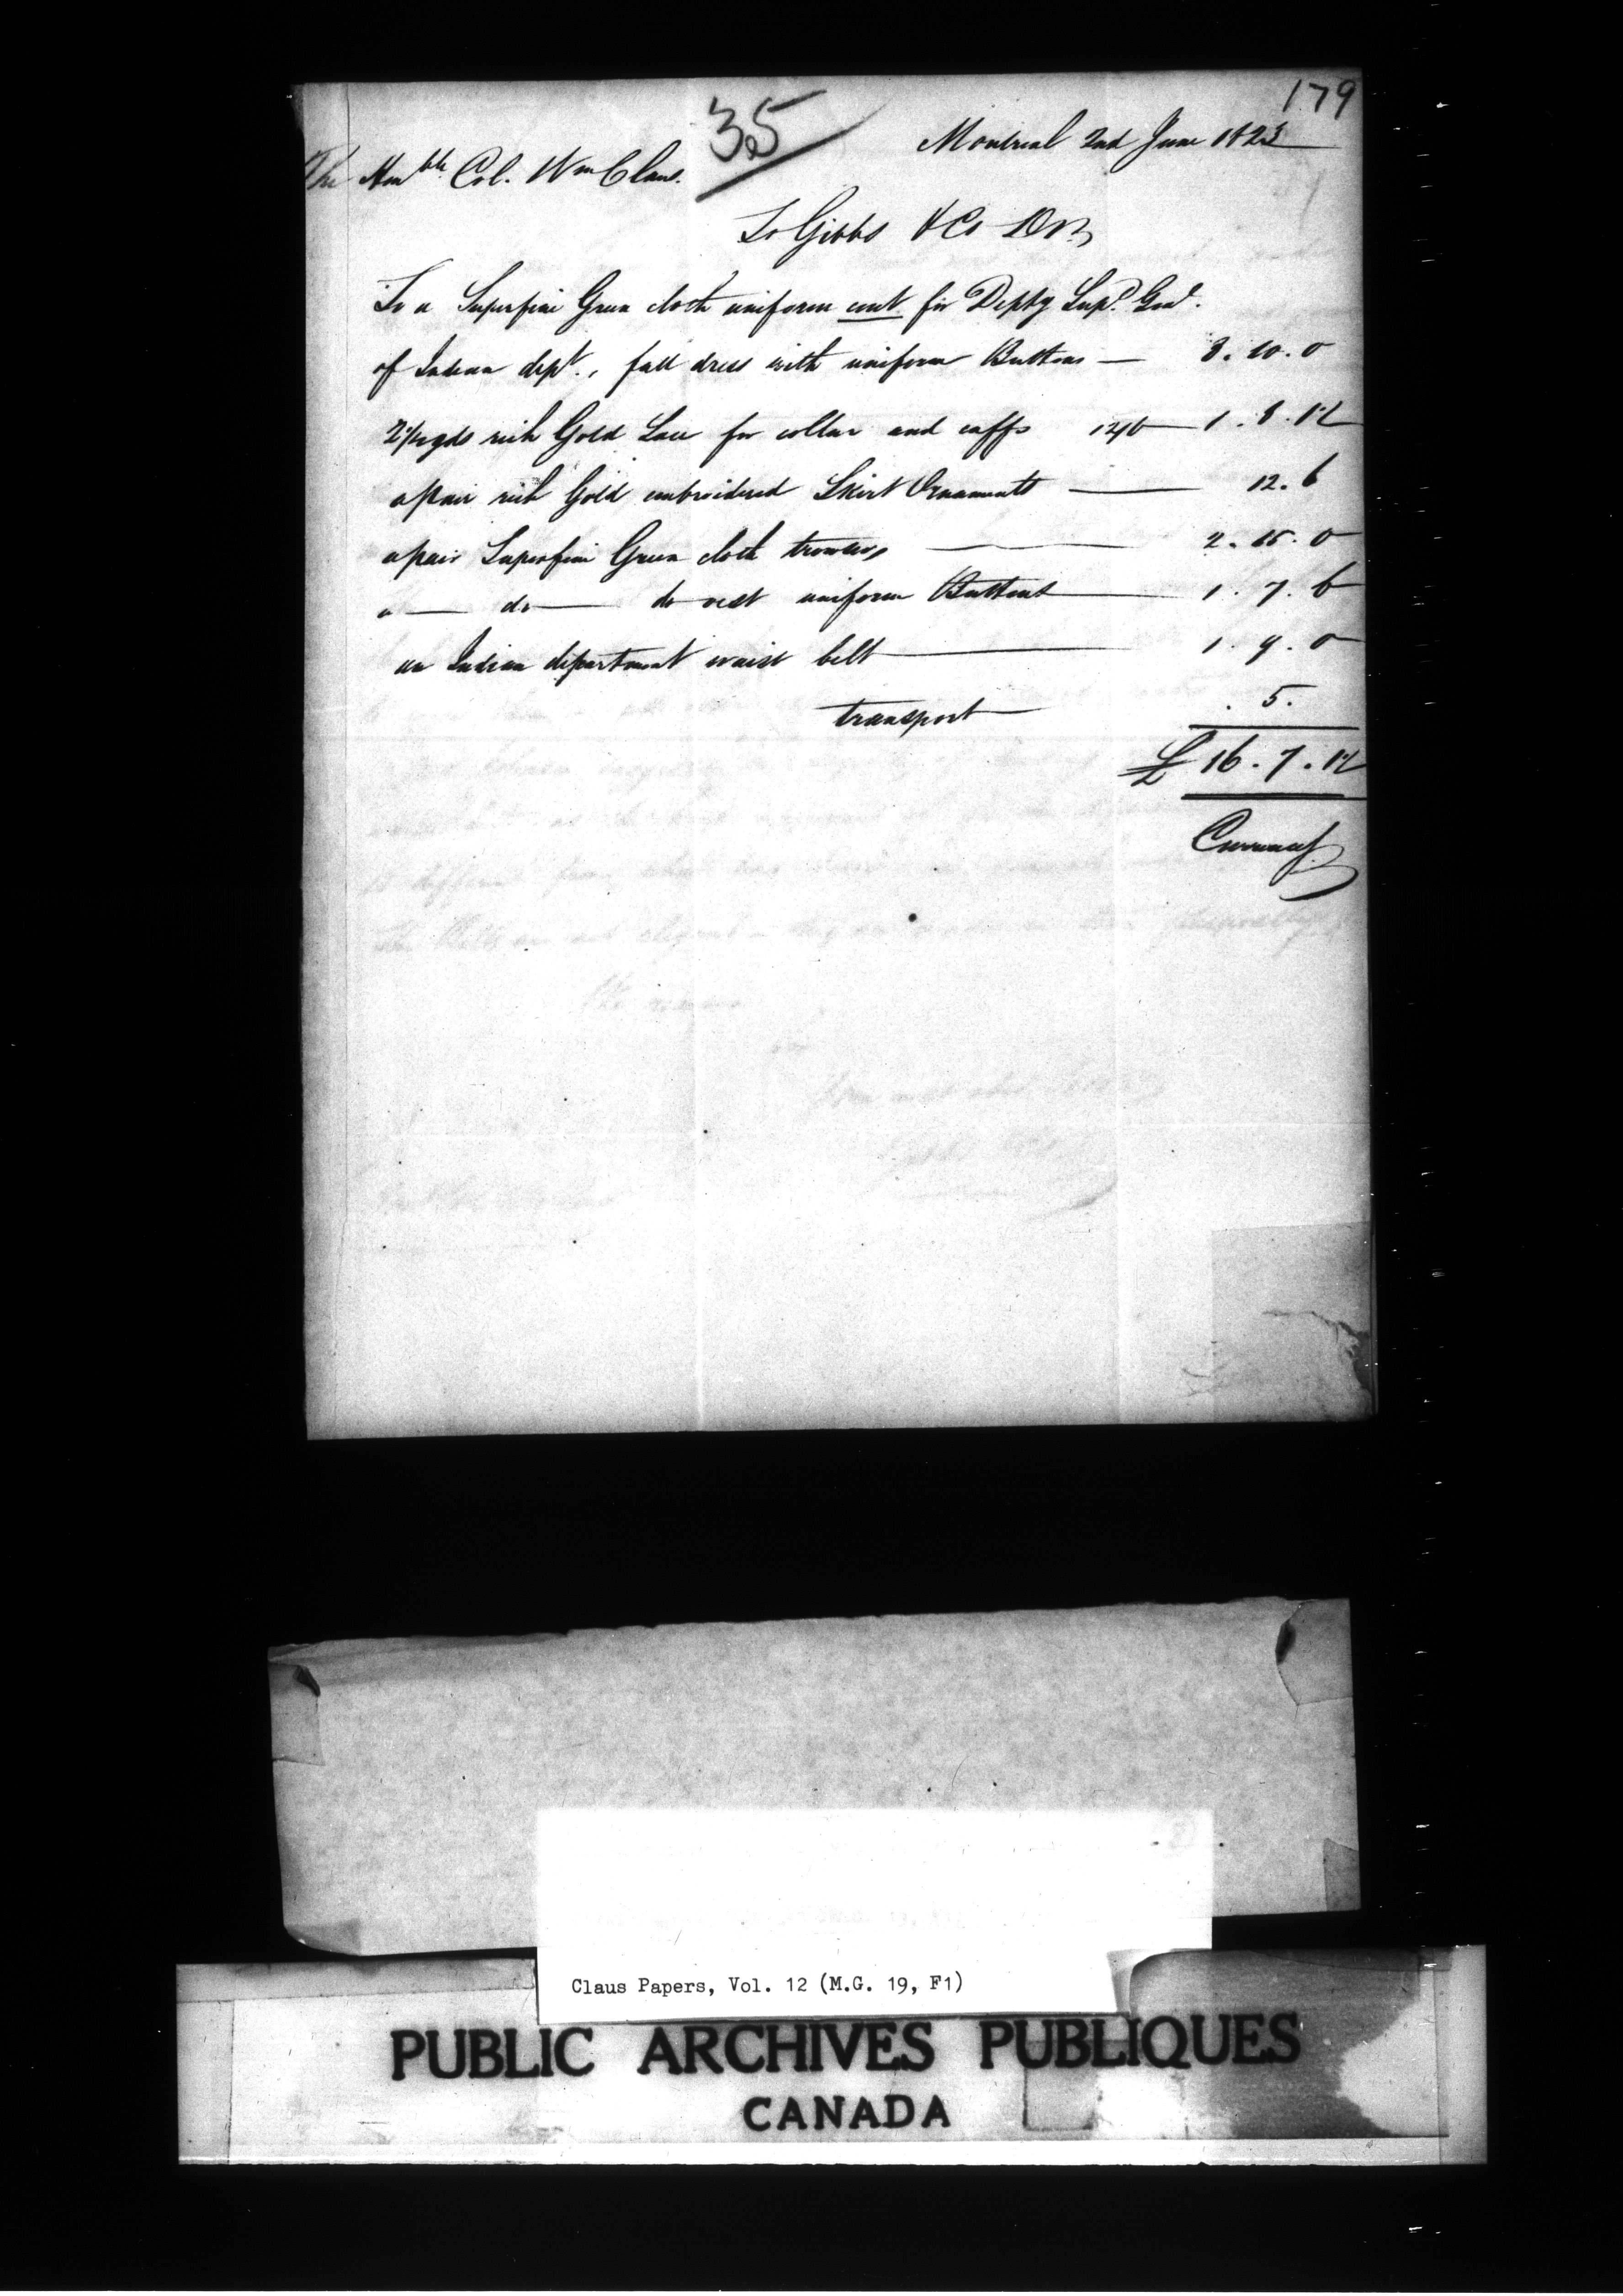 179
35
Montreal 2nd June 1823
The Honble Col. Wm Claus.
To Gibbs & Co Dr.
To a Superfine Green cloth uniform coat for Depty Supd. Genl.
of Indian dept., full dress with uniform Buttons — 8. 10. 0
2¼ yds rich Gold Lace for collar and cuffs 12/6 — 1. 8. 1½
a pair rich Gold embroidered Skirt Ornaments — 12. 6
a pair Superfine Green cloth trowsers — 2. 15. 0
a — do — do vest uniform Buttons — 1. 7. 6
an Indian department waist belt — 1. 9. 0
transport — . 5.
£ 16. 7. 1½
Currency
Claus Papers, Vol. 12 (M.G. 19, F1)
PUBLIC ARCHIVES PUBLIQUES
CANADA